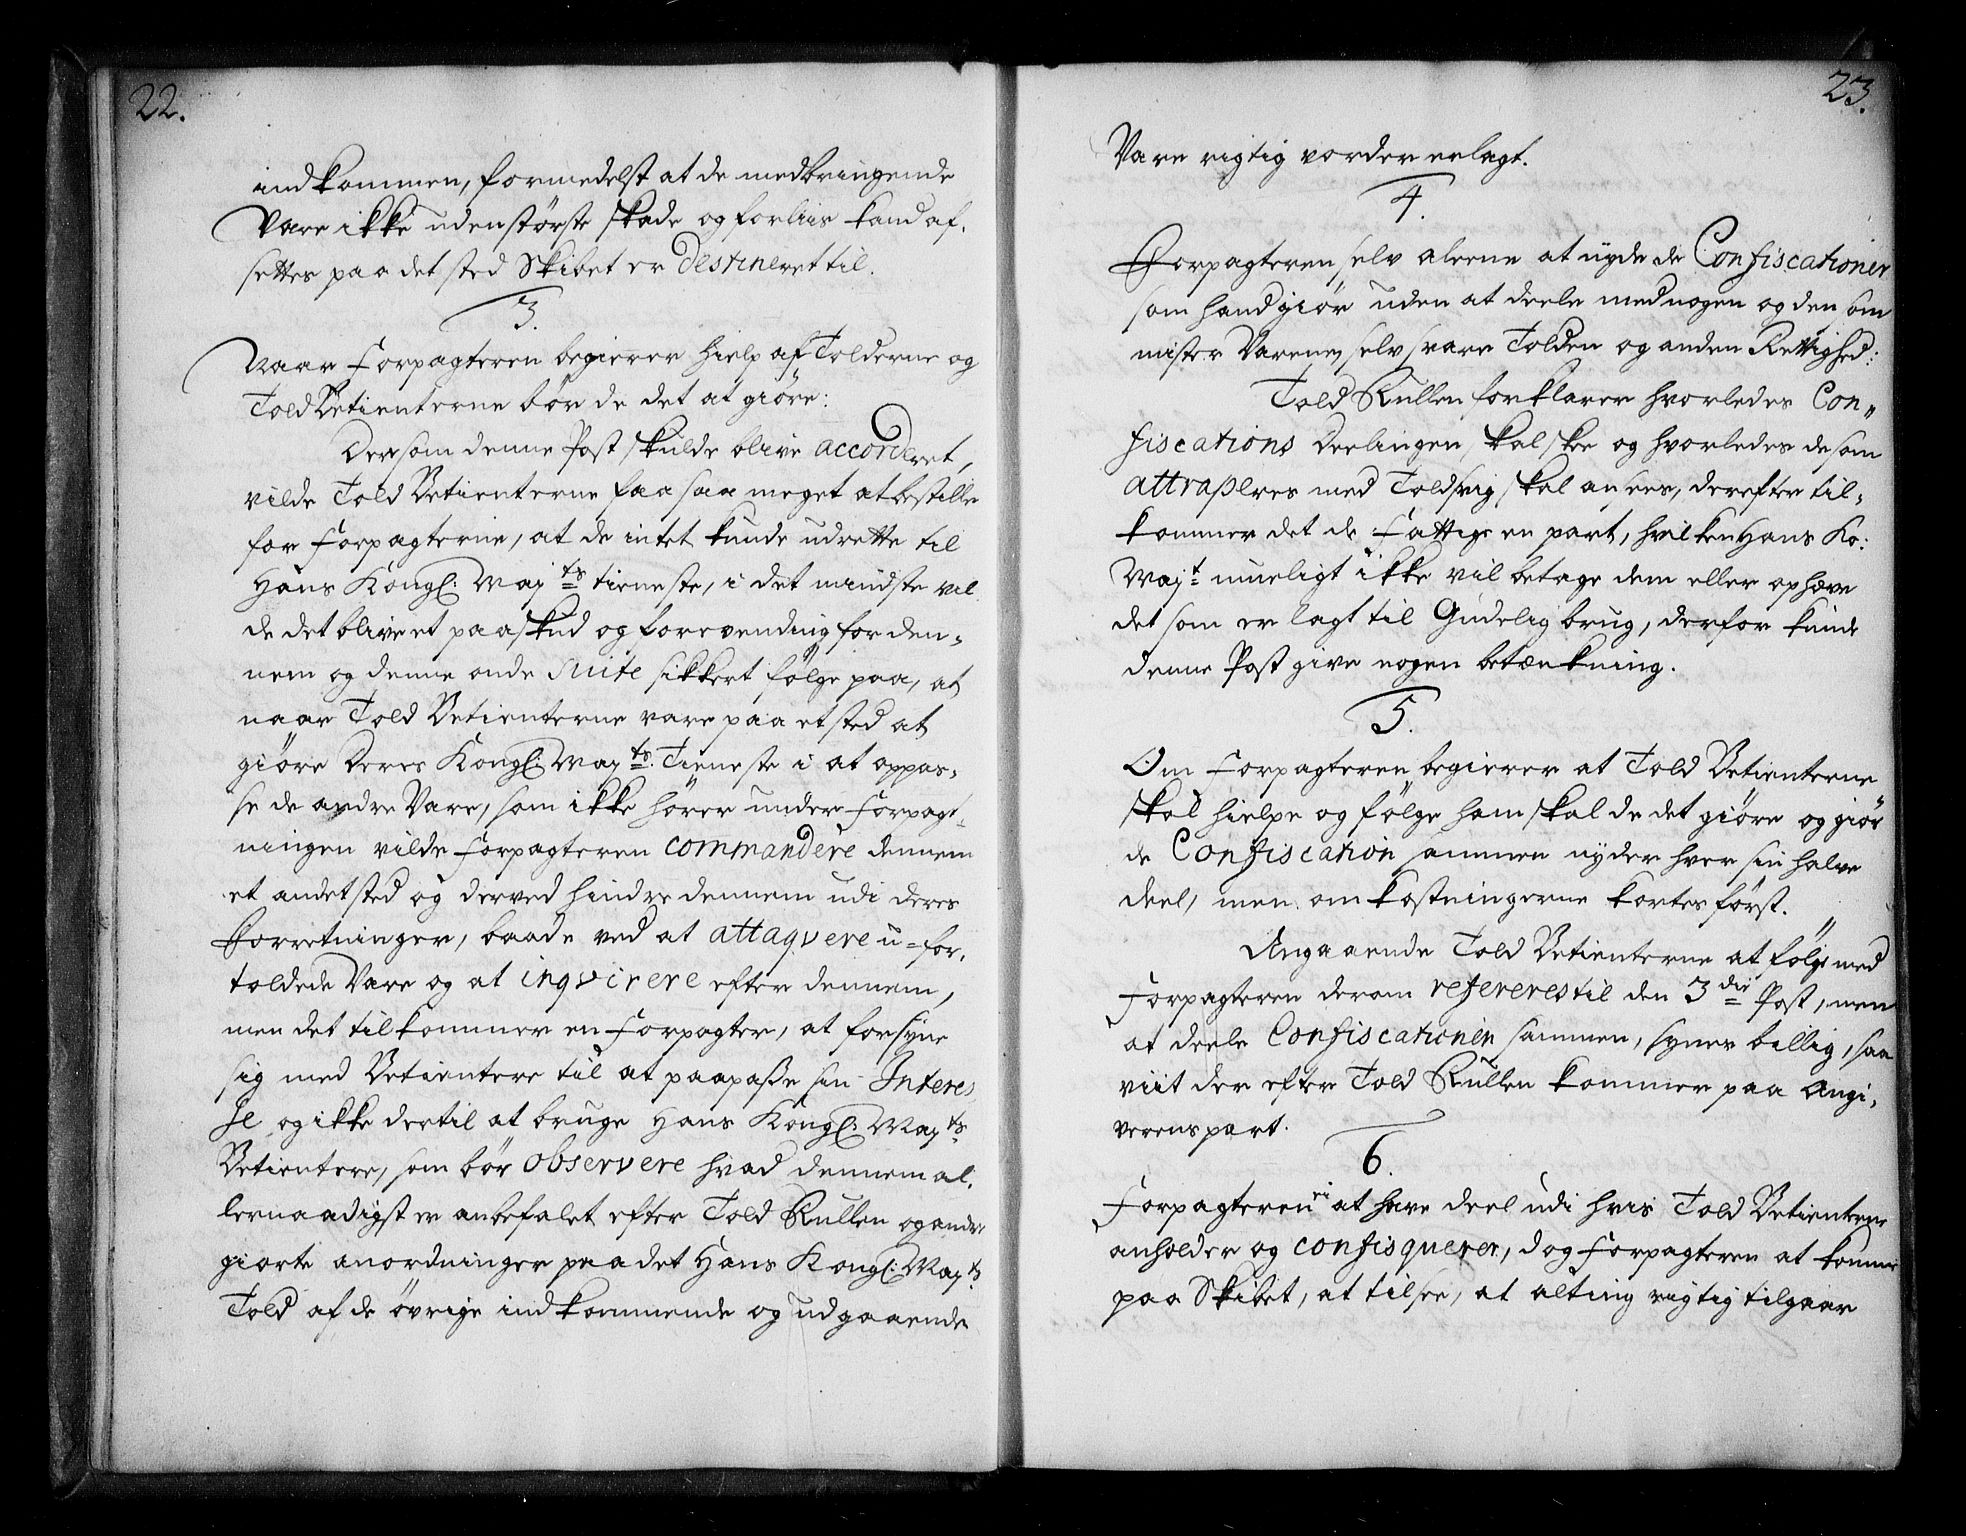 22.
indkommen, formedelst at de medbringende
Vare ikke uden störste skade og forliis kand af-
settes paa det sted Skibet er destineret til.
3.
Naar Forpagteren begierer hielp af Tolderne og
Told Betienterne bör de det at giöre:
Dersom denne Post skulde blive accorderet,
vilde Told Betienterne faa saa meget at bestille
for Forpagterne, at de intet kunde udrette til
Hans Kongl: Majts tieneste, i det mindste vil
de det blive et paaskud og forevending for den-
nem og denne onde suite sikkert fölge paa, at
naar Told Betienterne vare paa et sted at
giöre Deres Kongl: Mayts: Tieneste i at oppas-
se de andre Vare, som ikke hörer under Forpagt-
ningen vilde Forpagteren commandere dennem
et andet sted og derved hindre dennem udi deres
Forretninger, baade ved at attaqvere u-for-
toldede Vare og at inqvirere efter dennem,
men det tilkommer en Forpagter, at forsyne
sig med Betientere til at paapasse sin Interes
se og ikke dertil at bruge Hans Kongl: Mayts
Betientere, som bör observere hvad dennem al-
lernaadigst er anbefalet efter Told Rullen og andre
giorte anordninger paa det Hans Kongl: Mayts
Told af de övrige indkommende og udgaaende
23.
Vare rigtig vorder erlagt.
4.
Forpagteren selv aleene at nyde de Confiscationer
som hand giör uden at deele med nogen og den som
mister Varene, selv svare Tolden og anden Rettighed:
Told Rullen forklarer hvorledes Con-
fiscations Deelingen skal skee og hvorledes de som
attraperes med Toldsvig skal ansees, derefter til-
kommer det de Fattige en part, hvilken Hans Ko:
Majt: mueligt ikke vil betage dem eller ophæve
det som er lagt til Gudelig brug, derfor kunde
denne Post give nogen betænkning.
5.
Om Forpagteren begierer at Told Betienterne
skal hielpe og fölge ham skal de det giöre og giör
de Confiscation sammen nyder hver sin halve
deel, men omkostningerne kortes först.
Angaaende Told Betienterne at fölge med
Forpagteren derom refereres til den 3die Post, men
at deele Confiscationen sammen, synes billig, saa
viit der efter Told Rullen kommer paa Angi-
verens part.
6.
Forpagteren ei at have deel udi hvis Told Betienterne
anholder og confisqverer, dog Forpagteren at komme
paa Skibet, at tilsee, at alting rigtig tilgaar